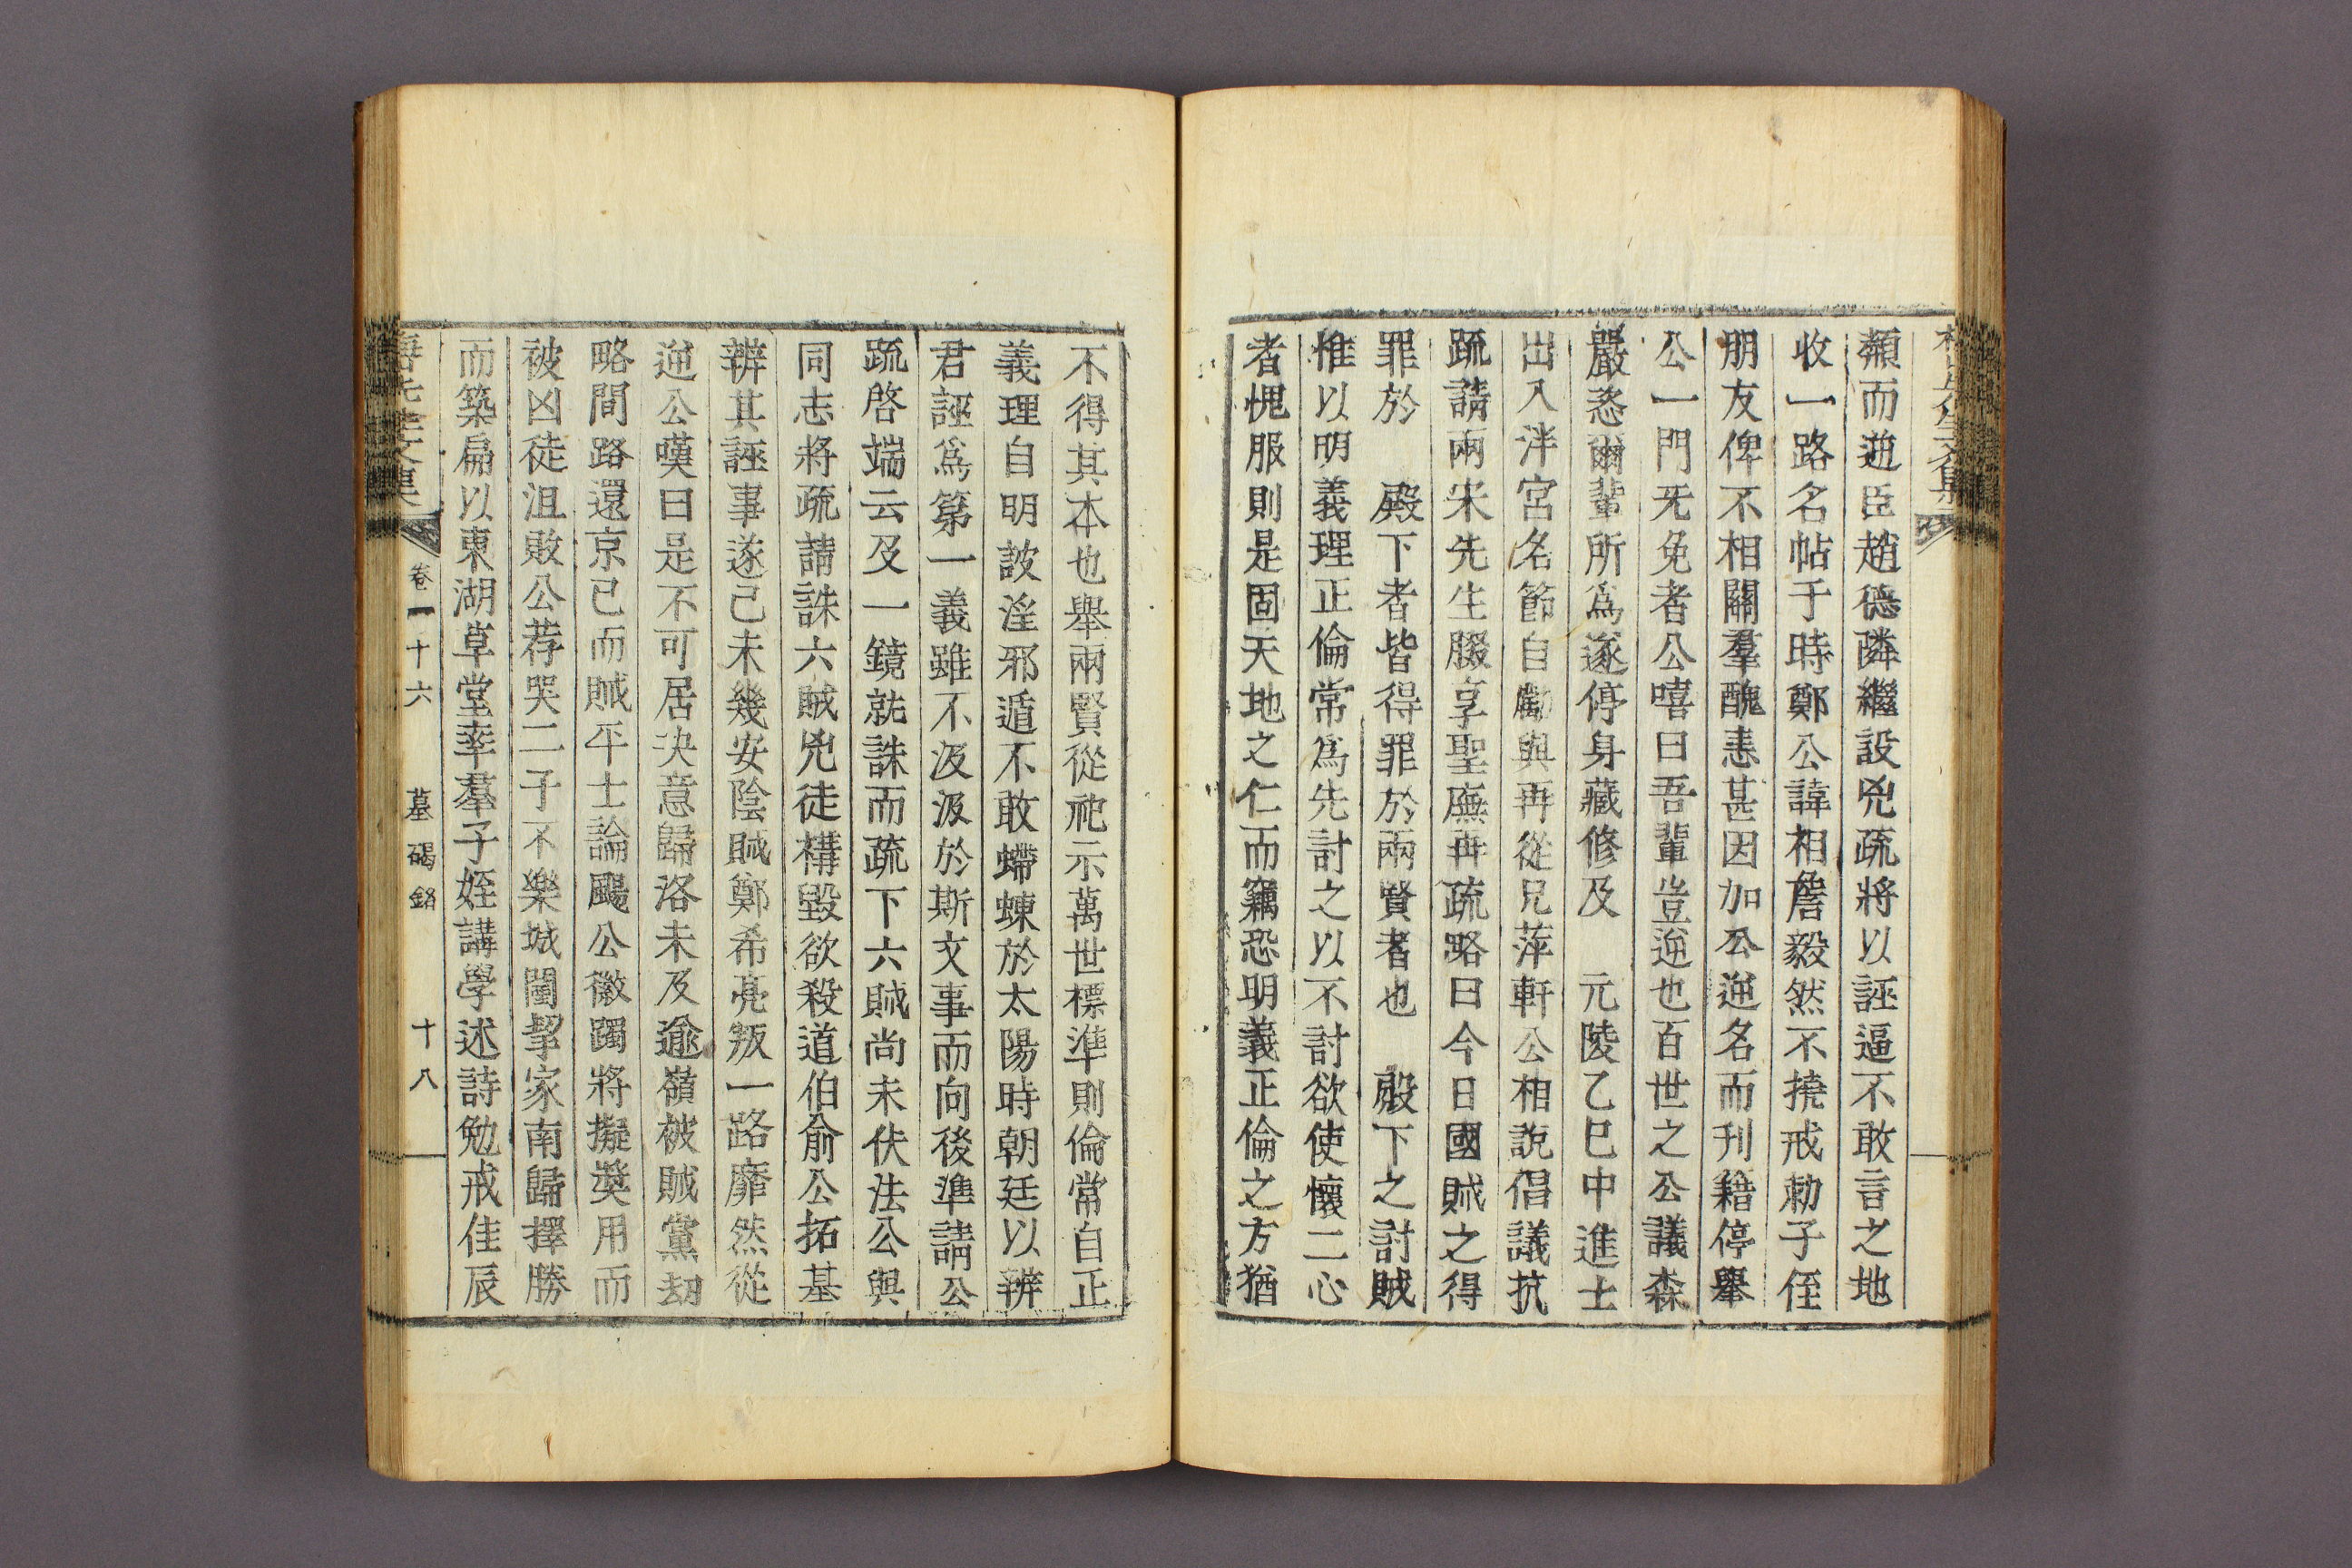 顙而逆臣趙德隣繼設兇疏將以誣逼不敢言之地
收一路名帖于時鄭公諱相詹毅然不撓戒勅子侄
朋友俾不相關羣醜恚甚因加公逆名而刊籍停擧
公一門旡免者公嘻曰吾輩豈逆也百世之公議森
嚴恣爾輩所爲遂停身藏修及　元陵乙巳中進士
出入泮宮名節自勵與再從兄萍軒公相說倡議抗
疏請兩宋先生腏享聖廡再疏略曰今日國賊之得
罪於　殿下者皆得罪於兩賢者也　殿下之討賊
惟以明義理正倫常爲先討之以不討欲使懷二心
者愧服則是固天地之仁而竊恐明義正倫之方猶
不得其本也舉兩賢從祀示萬世標準則倫常自正
義理自明詖淫邪遁不敢螮蝀於太陽時朝廷以辨
君誣爲第一義雖不汲汲於斯文事而向後準請公
疏啓端云及一鏡就誅而疏下六賊尚未伏法公與
同志將疏請誅六賊兇徒構毀欲殺道伯俞公拓基
辨其誣事遂已未幾安陰賊鄭希亮叛一路靡然從
逆公嘆曰是不可居决意歸洛未及逾嶺被賊黨劫
略間路還京已而賊平士論颺公徽躅將擬奬用而
被凶徒沮敗公荐哭二子不樂城闉挈家南歸擇勝
而築扁以東湖草堂率羣子姪講學述詩勉戒佳辰
先生文集
卷一十六
墓碣銘
十八